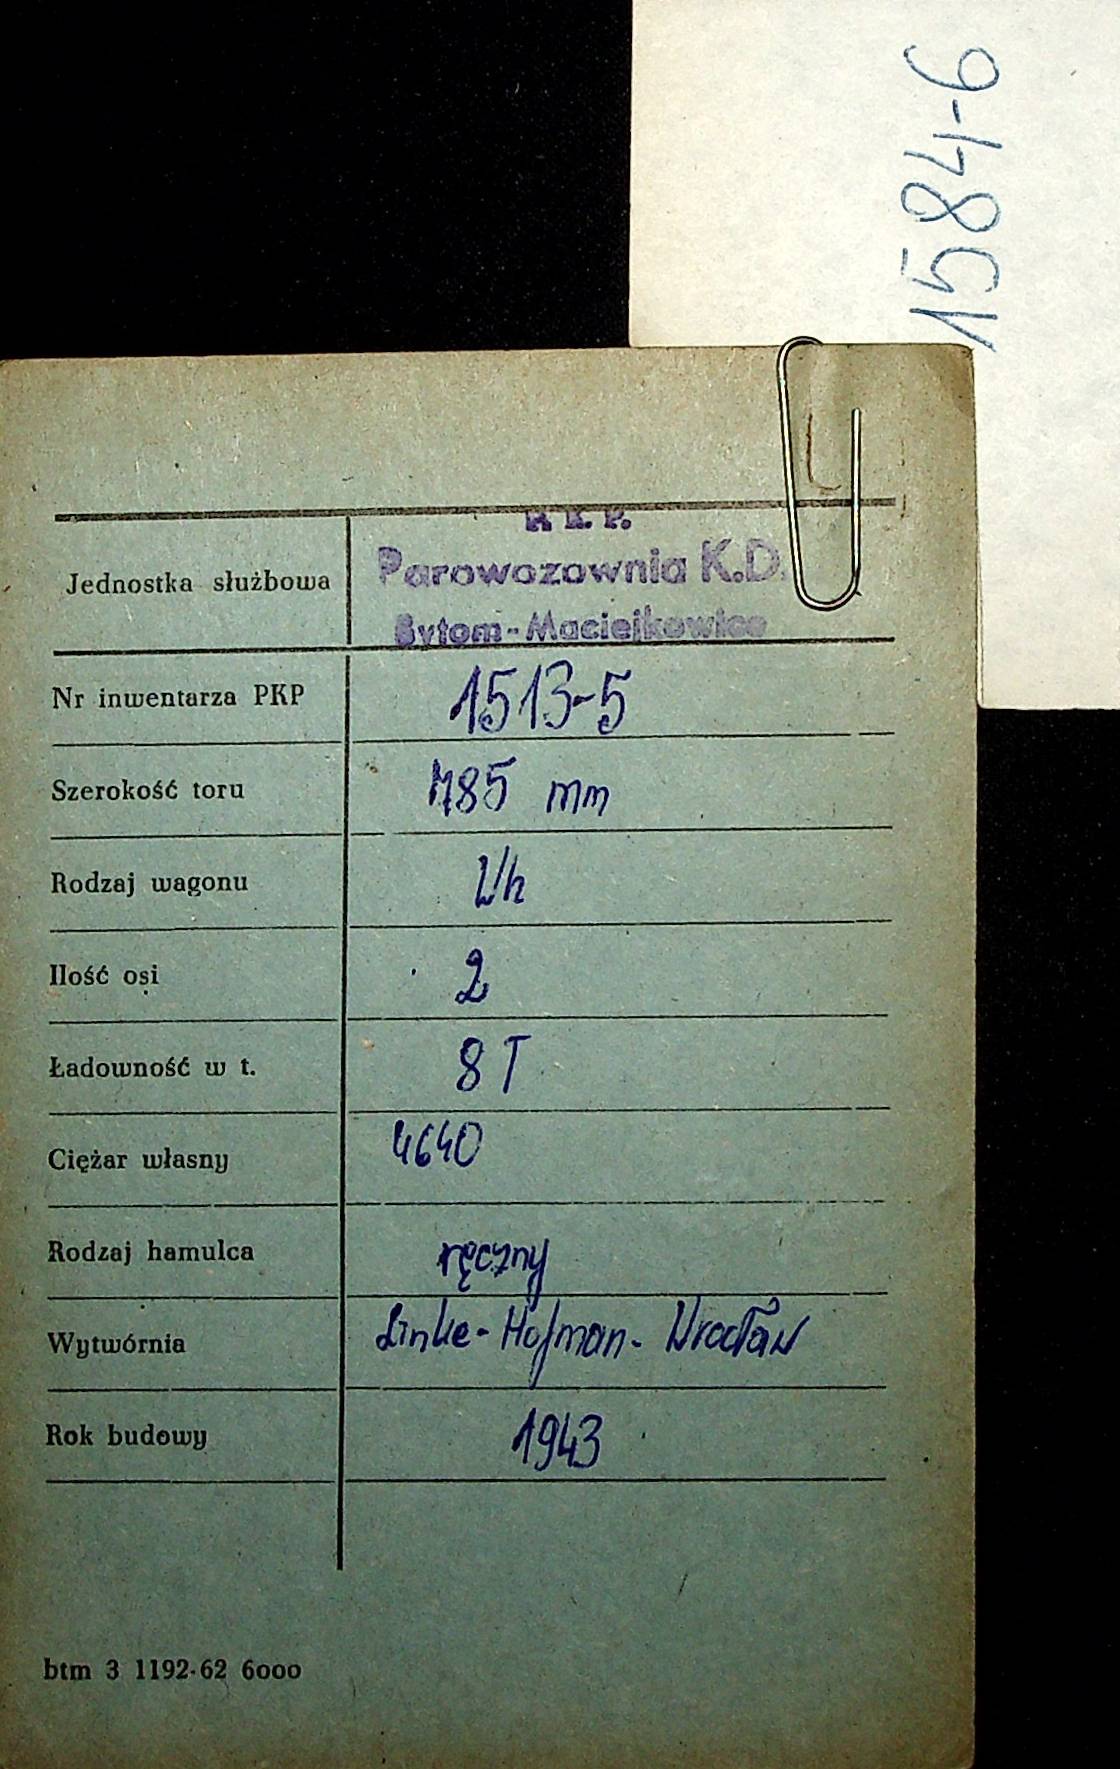 1584-6
P. K. P.
Jednostka służbowa Parowozownia K.D.
Bytom-Maciejkowice
Nr inwentarza PKP 1513-5
Szerokość toru 785 mm
Rodzaj wagonu Wh
Ilość osi 2
Ładowność w t. 8 T
Ciężar własny 4640
Rodzaj hamulca ręczny
Wytwórnia Linke-Hofman-Wrocław
Rok budowy 1943
btm 3 1192-62 6000